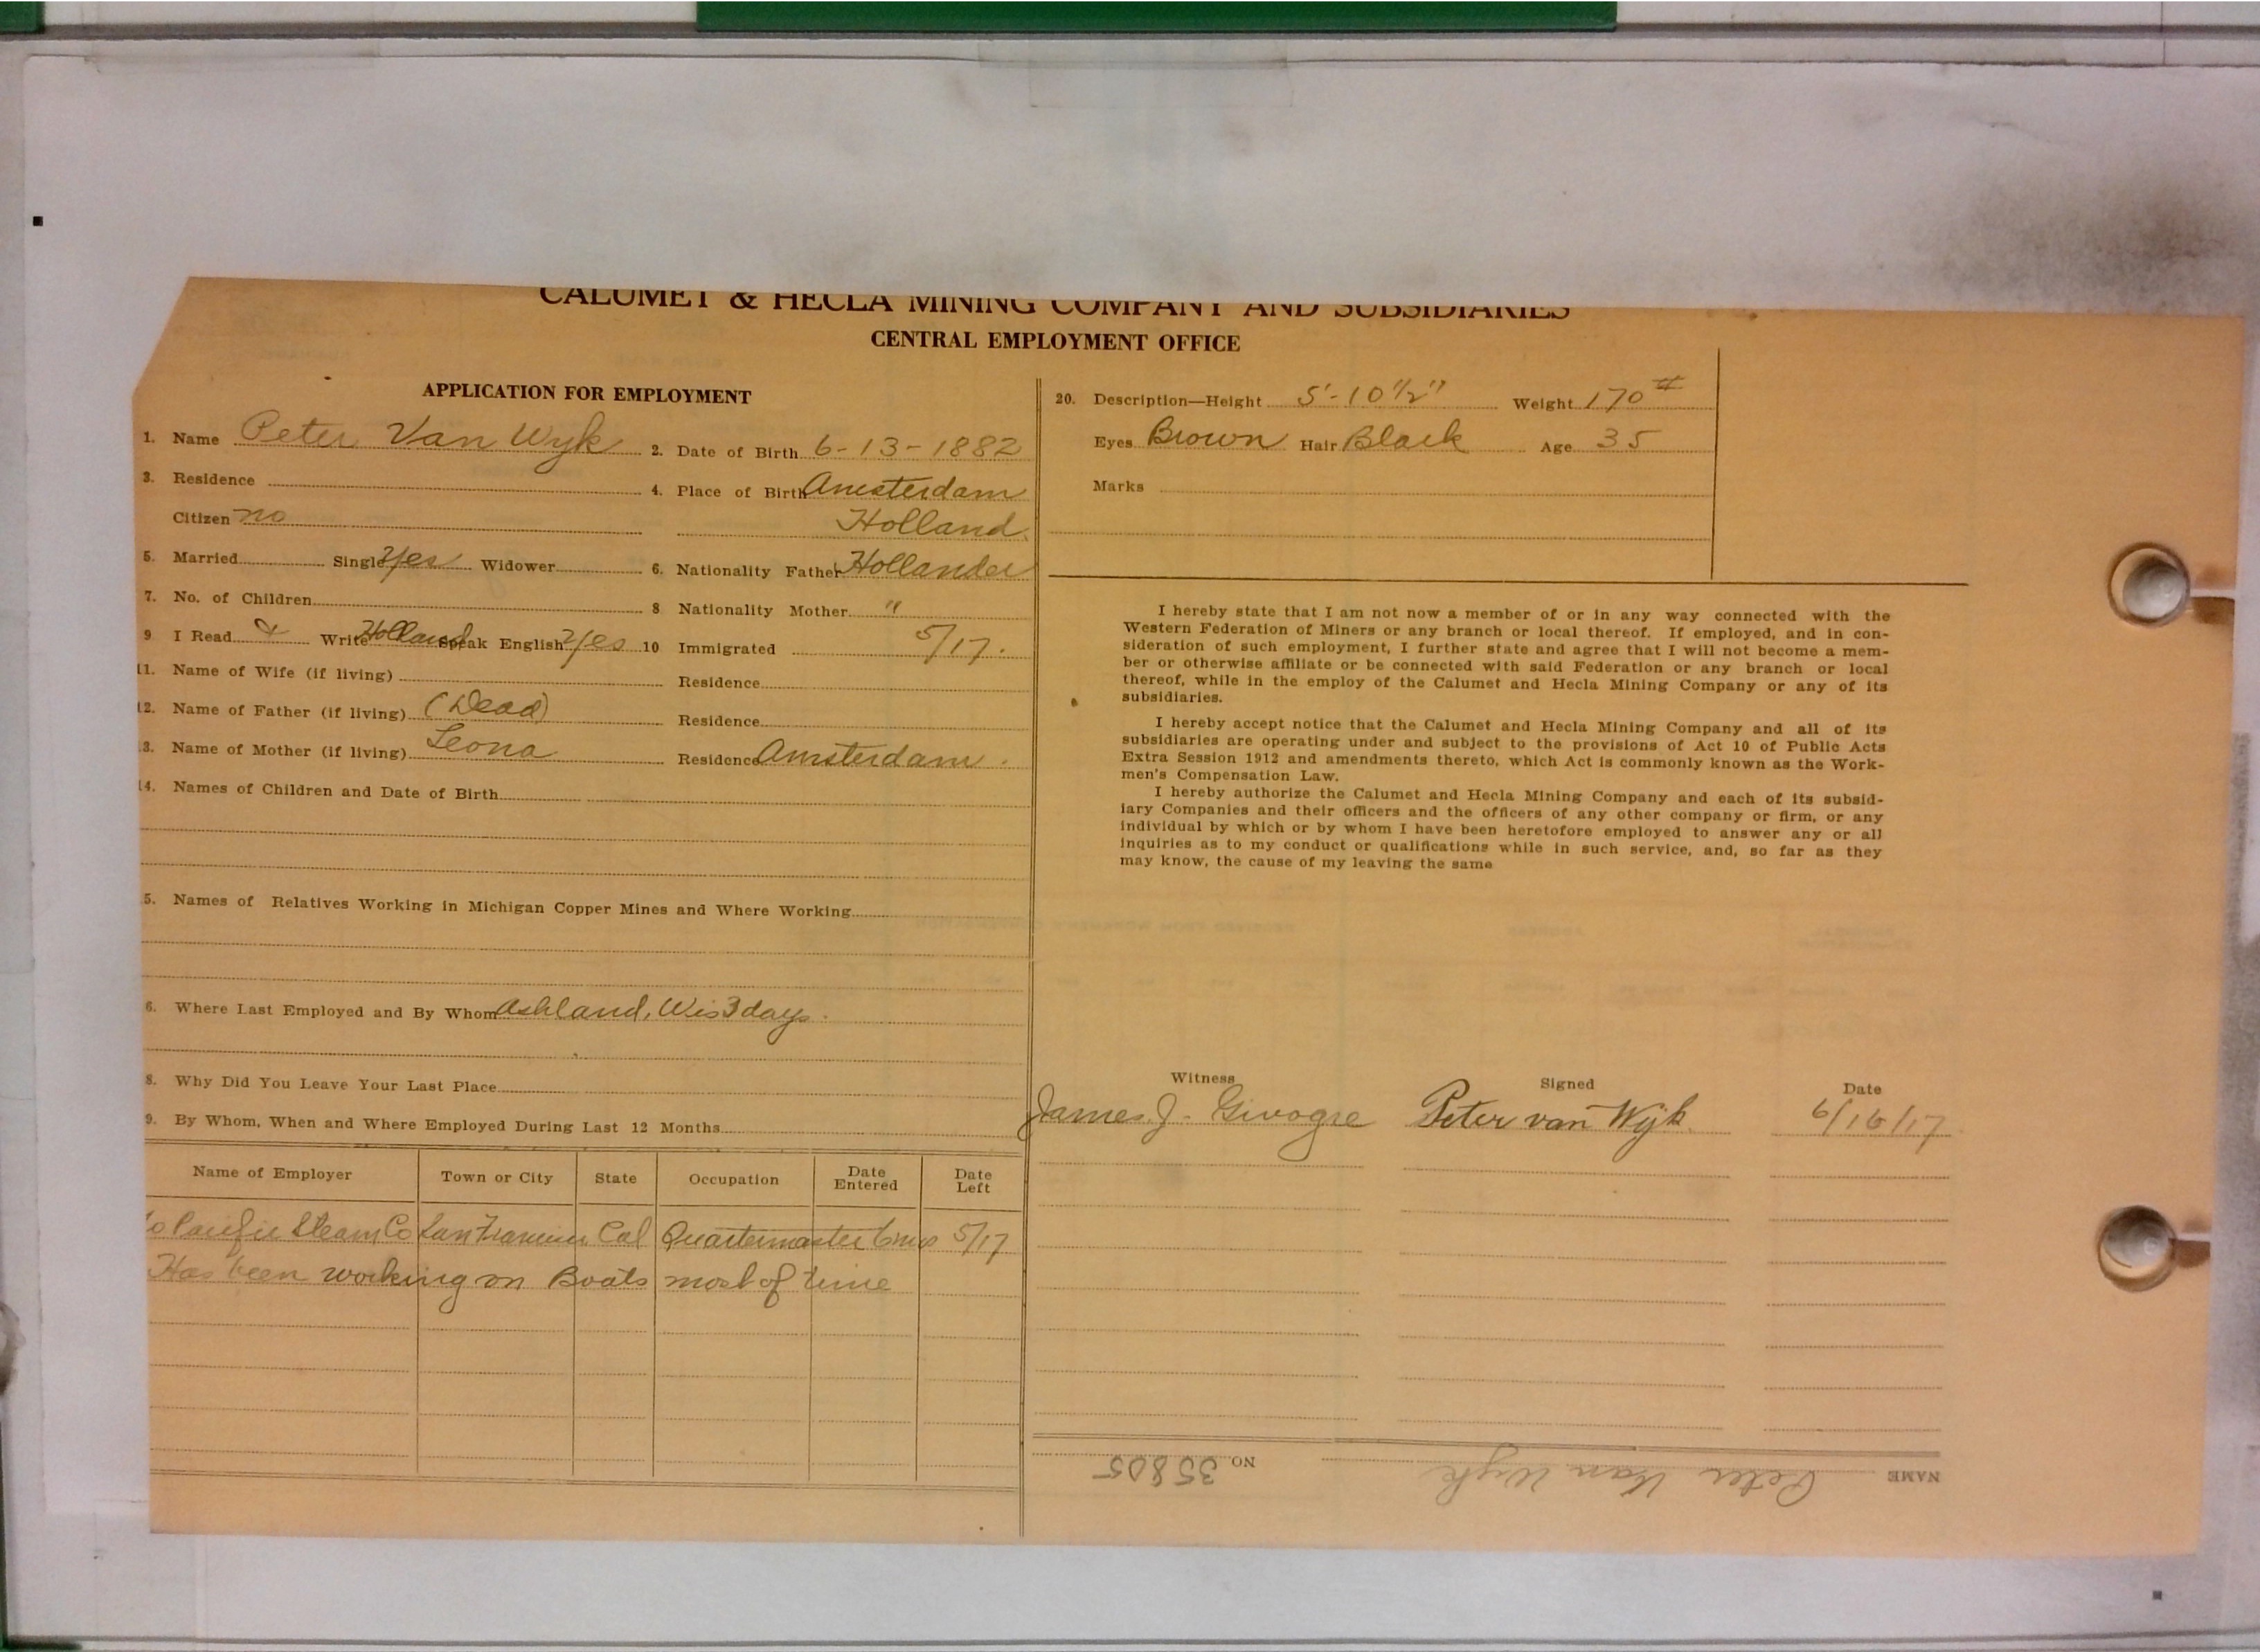 CALUMET & HECLA MINING COMPANY AND SUBSIDIARIES
CENTRAL EMPLOYMENT OFFICE
APPLICATION FOR EMPLOYMENT
1. Name Peter Van Wyk 2. Date of Birth 6-13-1882
3. Residence 4. Place of Birth Amsterdam
Citizen no Holland
5. Married Single Yes Widower 6. Nationality Father Hollander
7. No. of Children 8 Nationality Mother "
9 I Read & Write Holland Speak English Yes 10 Immigrated 5/17.
11. Name of Wife (if living) Residence
12. Name of Father (if living) (Dead) Residence
13. Name of Mother (if living) Leona Residence Amsterdam.
14. Names of Children and Date of Birth
5. Names of Relatives Working in Michigan Copper Mines and Where Working
6. Where Last Employed and By Whom Ashland, Wis 3 days.
8. Why Did You Leave Your Last Place
9. By Whom, When and Where Employed During Last 12 Months
Name of Employer Town or City State Occupation Date Entered Date Left
Pacific Steam Co San Francisco Cal Quartermaster 6 mos 5/17
Has been working on Boats most of time
20. Description—Height 5'-10 1/2" Weight 170#
Eyes Brown Hair Black Age 35
Marks
I hereby state that I am not now a member of or in any way connected with the
Western Federation of Miners or any branch or local thereof. If employed, and in con-
sideration of such employment, I further state and agree that I will not become a mem-
ber or otherwise affiliate or be connected with said Federation or any branch or local
thereof, while in the employ of the Calumet and Hecla Mining Company or any of its
subsidiaries.
I hereby accept notice that the Calumet and Hecla Mining Company and all of its
subsidiaries are operating under and subject to the provisions of Act 10 of Public Acts
Extra Session 1912 and amendments thereto, which Act is commonly known as the Work-
men's Compensation Law.
I hereby authorize the Calumet and Hecla Mining Company and each of its subsid-
iary Companies and their officers and the officers of any other company or firm, or any
individual by which or by whom I have been heretofore employed to answer any or all
inquiries as to my conduct or qualifications while in such service, and, so far as they
may know, the cause of my leaving the same
Witness Signed Date
James J. Peter van Wyk. 6/16/17
NAME Peter Van Wyk NO. 35805